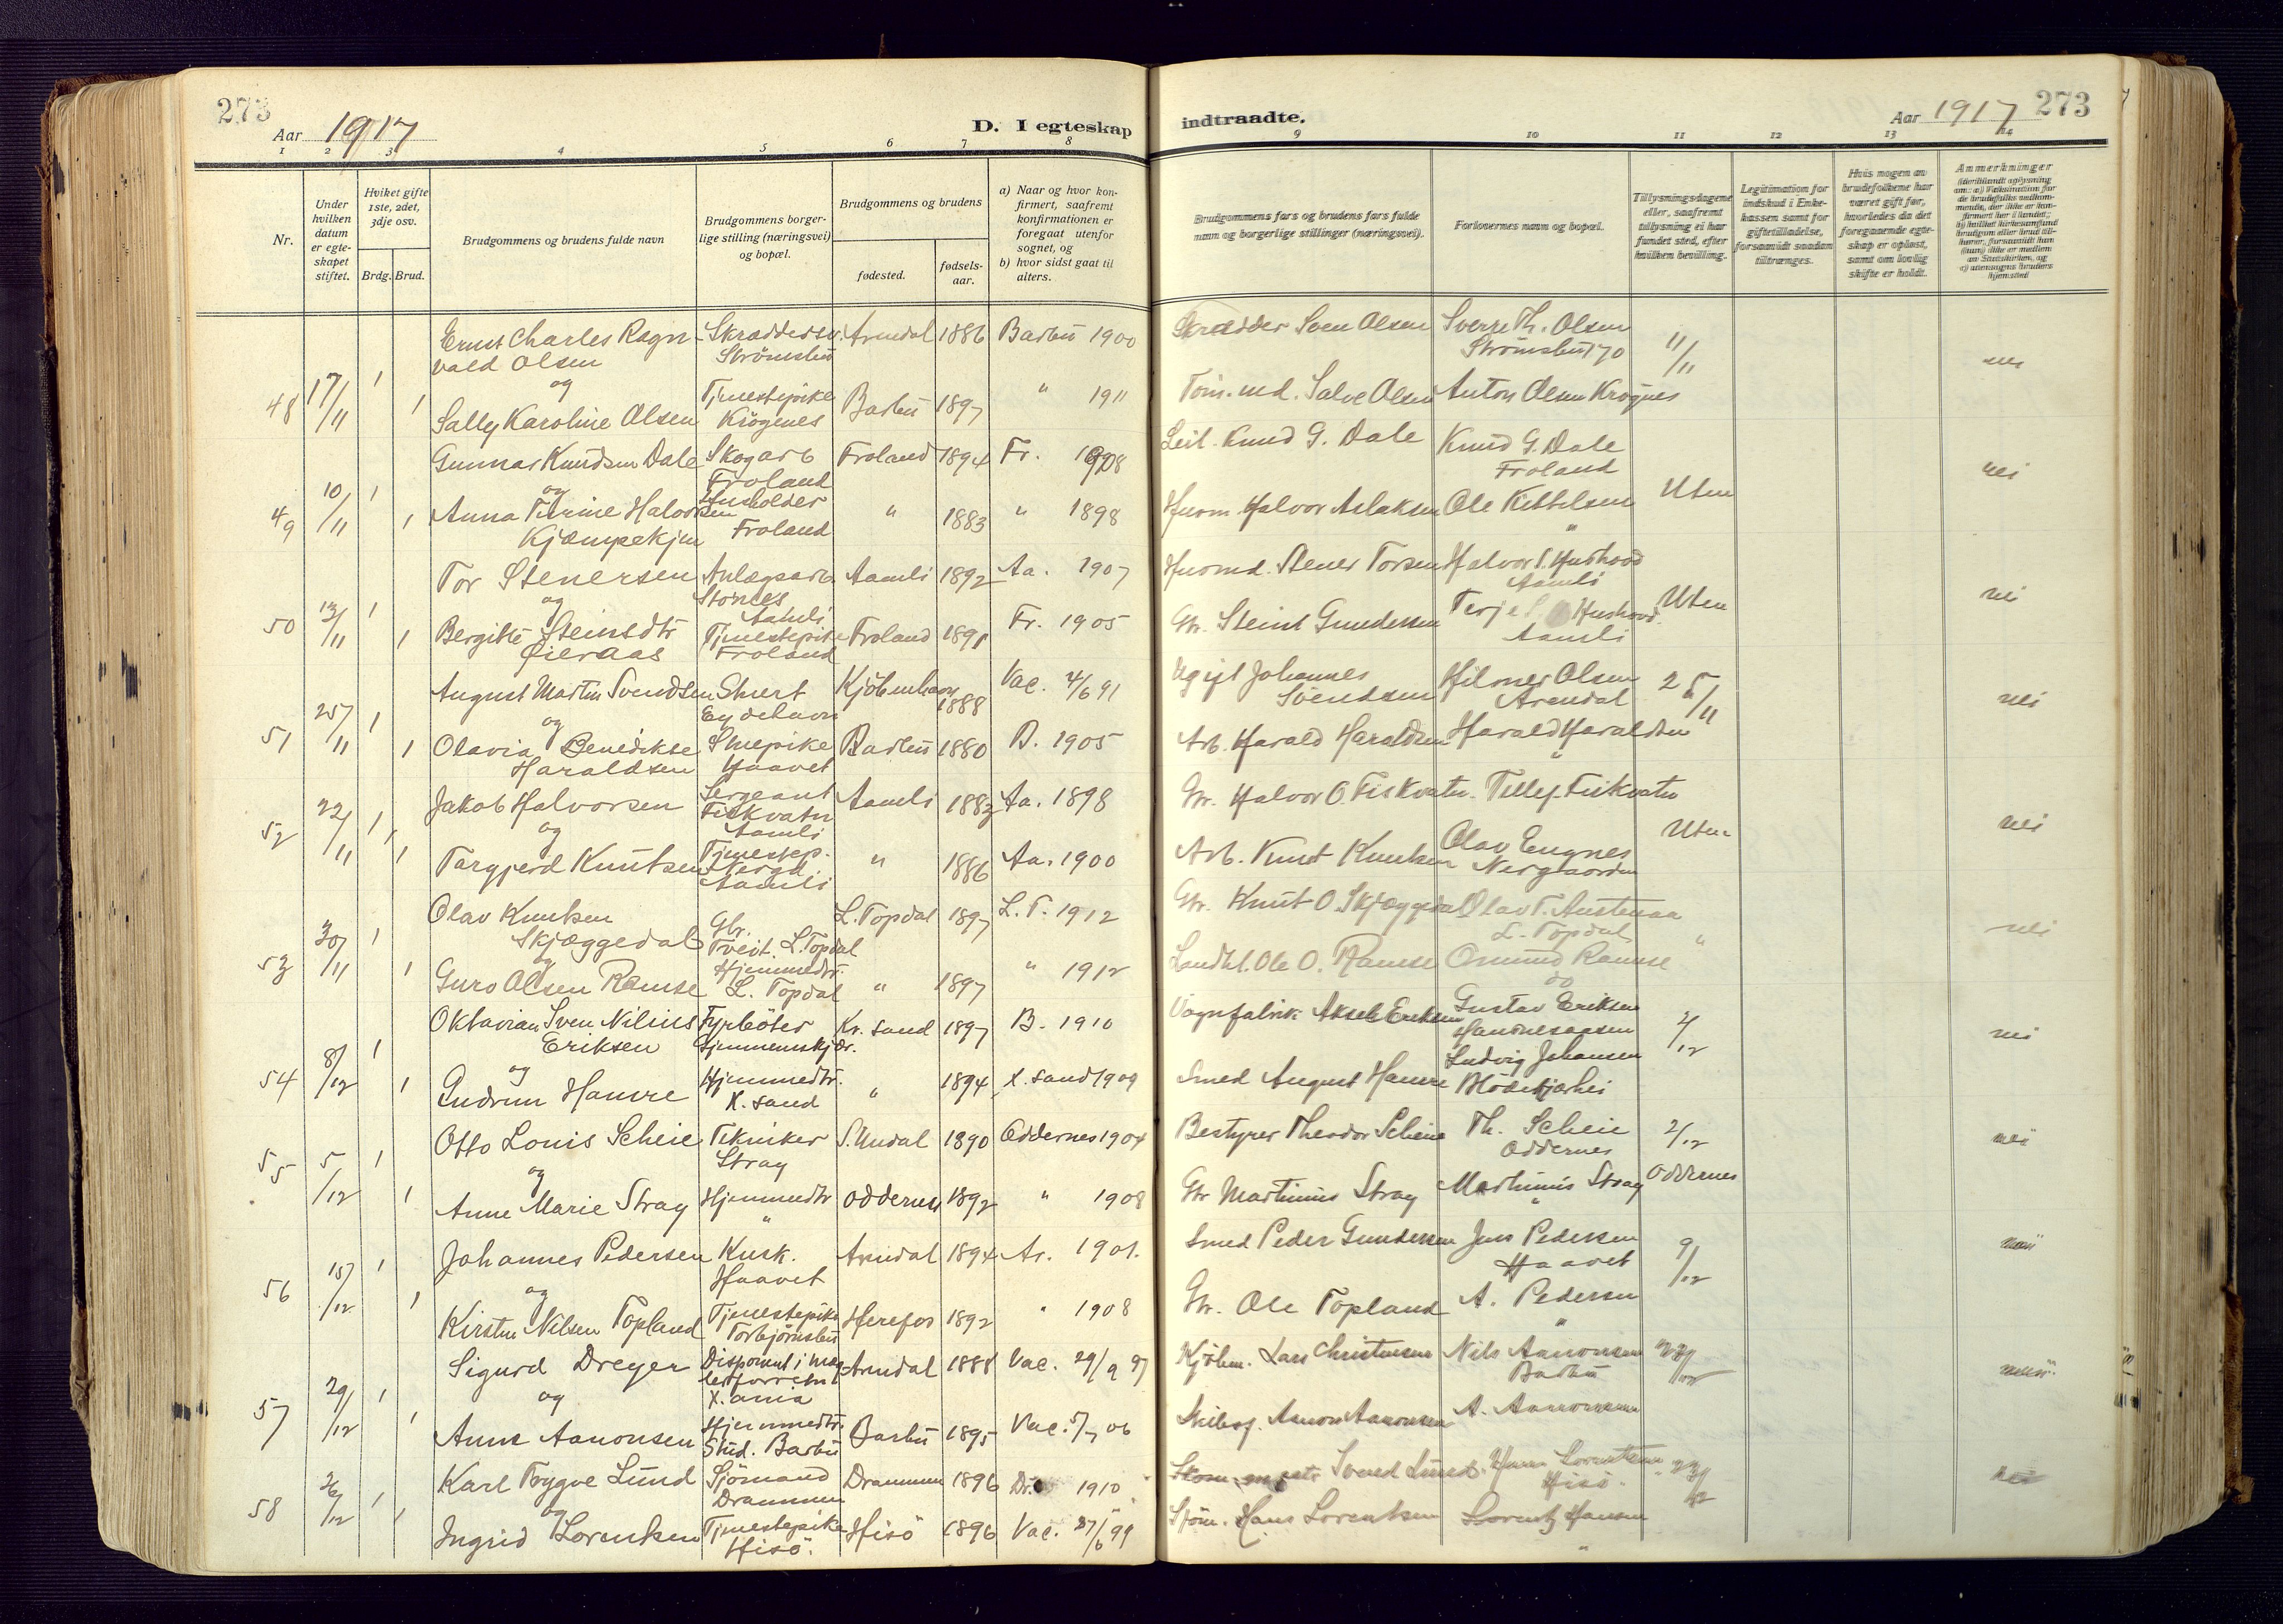 273
Aar 1917
D. I egteskap
1 2 3 4 5 6 7 8
Nr.
Under hvilken datum er egteskapet stiftet.
Hvilket gifte 1ste, 2det, 3dje osv.
Brdg. Brud.
Brudgommens og brudens fulde navn
Brudgommens borgerlige stilling (næringsvei) og bopæl.
Brudgommens og brudens
fødested.
fødselsaar.
a) Naar og hvor konfirmert, saafremt konfirmationen er foregaat utenfor sognet, og
b) hvor sidst gaat til alters.
indtraadte.
Aar 1917
273
9 10 11 12 13 14
Brudgommens fars og brudens fars fulde navn og borgerlige stillinger (næringsvei).
Forlovernes navn og bopæl.
Tillysningsdagene eller, saafremt tillysning ei har fundet sted, efter hvilken bevilling.
Legitimation for indskud i Enkekassen samt for giftetilladelse, forsaavidt saadan tiltrænges.
Hvis nogen av brudefolkene har været gift før, hvorledes da det foregaaende egteskap er opløst, samt om lovlig skifte er holdt.
Anmerkninger
48 17/11 1 Ernst Charles Ragnvald Olsen Strømsbu Arendal 1886 Barbu 1900 Skrædder Sven Olsen Sverre Th. Olsen Strømsbu 170 11/11 nei
og
1 Sally Karoline Olsen Tjenestepike Krøgenes Barbu 1897 " 1911 Salve Olsen Anton Olsen Krøgnes
49 10/11 1 Gunnar Knudsen Dale Skogarb Froland Froland 1894 Fr. 1908 Leil. Knud G. Dale Knud G. Dale Froland Uten nei
og
1 Anna Halvorsen Kjæmpekjen Husholder Froland " 1883 " 1898 Husm. Halvor Aslaksen Ole Kittelsen "
50 13/11 1 Tor Stenersen Anlægsarb. Aamli Aamli 1892 Aa. 1907 Husmd. Stener Torsen Halvor T. Hushovd Aamli Uten nei
og
1 Bergitte Steinsdtr Øieraas Tjenestepike Froland Froland 1891 Fr. 1905 Gbr. Steint Gundersen Terje Hushovd Aamli
51 25/11 1 August Martin Svendsen Eydehavn Kjöbenhavn 1888 Vac. 4/6 91 Johannes Svendsen Hilmer Olsen Arendal 25/11 nei
og
1 Olavia Benedikte Haraldsen Haavet Barbu 1880 B. 1905 Arb. Harald Haraldsen Harald Haraldsen "
52 22/11 1 Jakob Halvorsen Sergeant Fiskvatn Aamli Aamli 1883 Aa. 1898 Gbr. Halvor O. Fiskvatn Tellef Fiskvatn Uten nei
og
1 Targjerd Knutsen Tjenestep. Aamli " 1886 Aa. 1900 Arb. Knut Knutsen Olav Engnes Nergaarden
53 30/11 1 Olav Knutsen Skjæggedal Gbr. Tveit. L. Topdal L. Topdal 1897 L. T. 1912 Gbr. Knut O. Skjæggedal Olav T. Austenaa L. Topdal " nei
og
1 Guro Olsen Ramse Hjemmedtr. L. Topdal " 1897 " 1912 Landhl. Ole O. Ramse Osmund Ramse do
54 8/12 1 Oktavian Sven Nilsius Eriksen Fyrböter Kr. sand 1897 B. 1910 Vognfabrik. Aksel Eriksen Gustav Eriksen 2/12 nei
og
1 Gudrun Hamre Hjemmedtr. K. sand " 1894 K. sand 1909 Smed August Hamre Ludvig Johansen
55 5/12 1 Otto Louis Scheie Tekniker Stray S. Undal 1890 Oddernes 1904 Bestyrer Theodor Scheie Th. Scheie Oddernes 2/12 Oddernes nei
og
1 Anne Marie Stray Hjemmedtr " Oddernes 1892 " 1908 Gbr Martinius Stray Martinius Stray "
56 15/12 1 Johannes Pedersen Kusk. Haavet Arendal 1894 Ar. 1901. Smed Peder Gundersen Jens Pedersen Haavet 9/12 nei
og
1 Kirsten Nilsen Topland Tjenestepike Torbjørnsbu Herefos 1892 " 1908 Gbr. Ole Topland A. Pedersen "
57 29/12 1 Sigurd Dreyer Disponent i K.ania Arendal 1888 Vac. 29/9 97 Kjöbm. Lars Christensen Nils Aanonsen Barbu 23/12 nei
og
1 Anne Aanonsen Hjemmedtr. Barbu Barbu 1895 Vac. 5/7 06 Aanon Aanonsen A. Aanonsen
58 26/12 1 Karl Trygve Lund Sjömand Drammen Drammen 1896 Dr. 1910 Svend Lund Hans Lorentsen Hisö. 23/12 nei
og
1 Ingrid Lorentsen Tjenestepike Hisö. Hisö 1896 Vac. 27/6 99 Sjöm. Hans Lorentsen Lorentz Hansen "